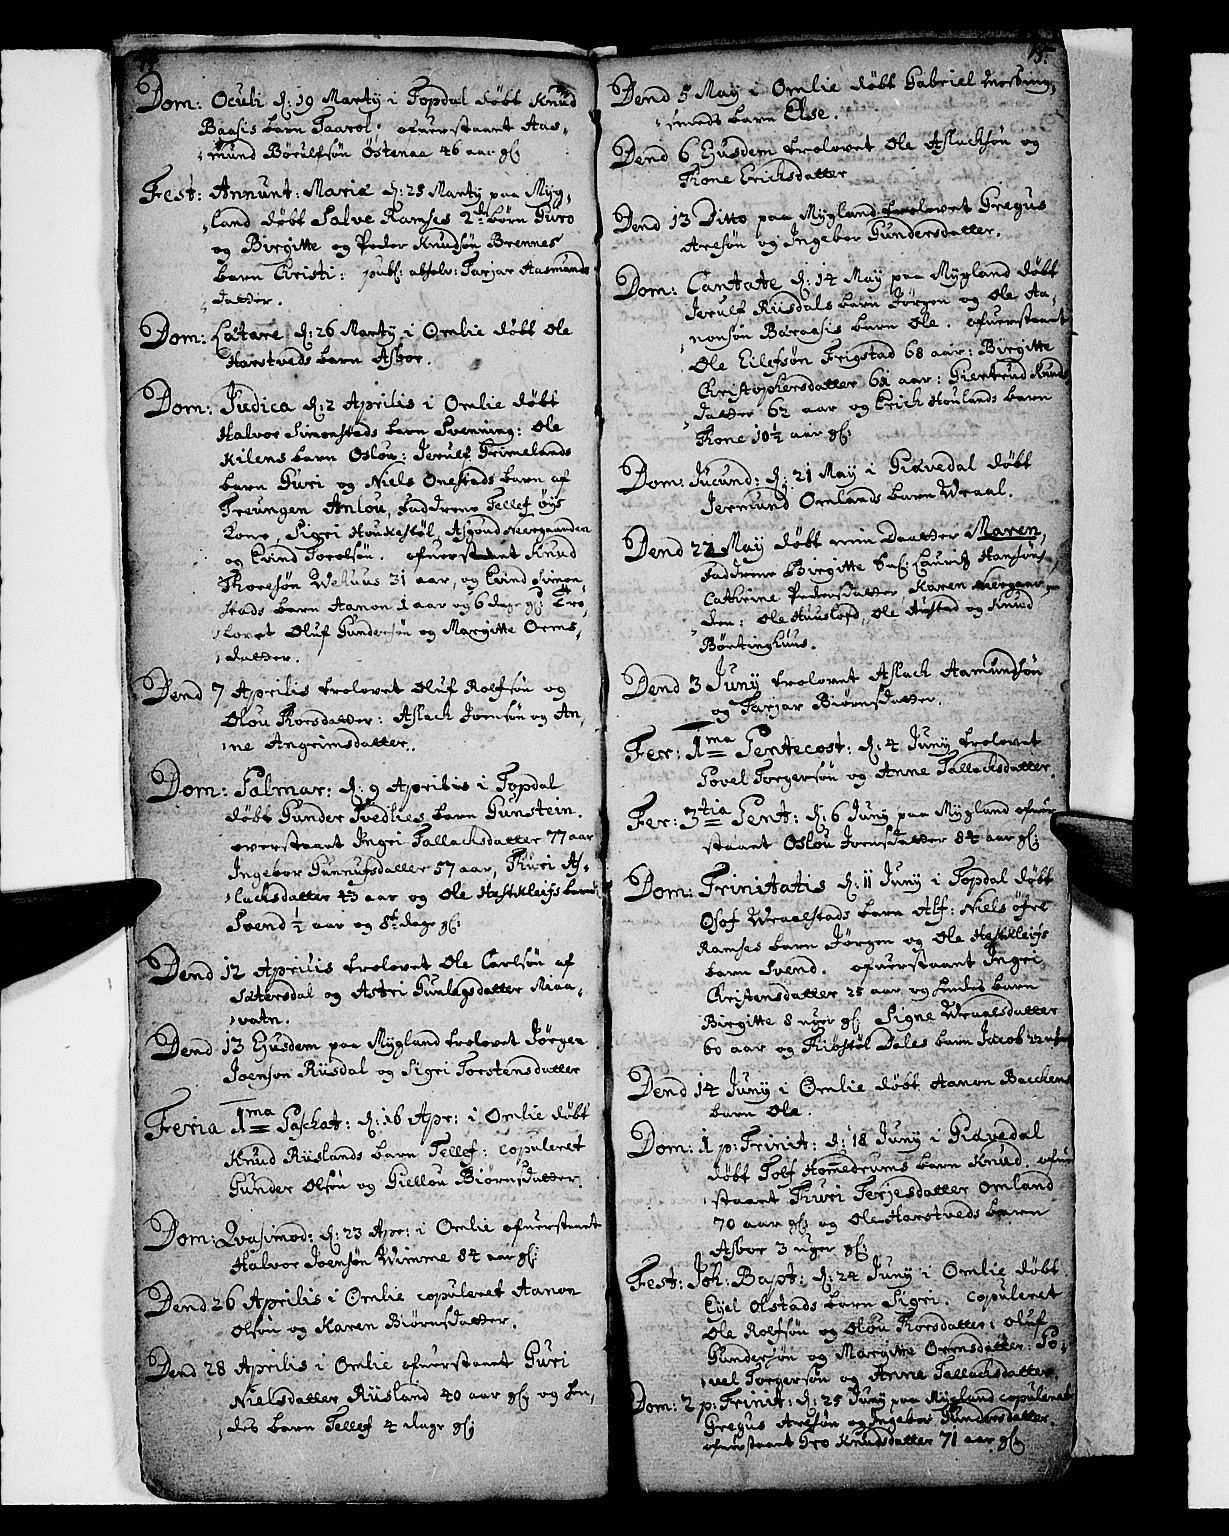 Dom: Oculi d: 19 Martij i Topdal døbt Knud
Baasis barn Taarol: ofuerstaaet Aas-
mund Børulfsøn Østenaa 46 aar gl:
Fest: Annunt: Mariæ d: 25 Martij paa Myg-
land døbt Salve Ramses 2de børn Guro
og Birgitte og Peder Knudsøn Brennes
barn Christi: publ: absolv: Tarjer Aasmunds
datter.
Dom: Lætare d: 26 Martij i Omlie døbt Ole
Harstveds barn Asbor.
Dom: Judica d: 2 Aprilis i Omlie døbt
Halvor Simonstads barn Svenning: Ole
Kilens barn Oslou: Jerulf Grimelands
barn Guri og Niels Onestads barn af
Treungen Anlou, faddrene Tellef øijs
Kone, Sigri Houkestøl, Asgond Neergaarden
og Evind Torolsøn. ofuerstaaet Knud
Thorelsøn Wehuus 31 aar, og Evind Simon
stads barn Aanon 1 aar og 6 dage gl: Tro-
lovet Oluf Gundersøn og Margitte Orms-
datter.
Dend 7 Aprilis trolovet Oluf Rolfsøn og
Olou Thorsdatter: Aslach Joensøn og An-
ne Angrimsdatter.
Dom: Palmar: d: 9 Aprilis i Topdal
døbt Gunder Tvedlies barn Gunstein.
overstaaet Ingri Tallachsdatter 77 aar
Ingebor Gunnufsdatter 57 aar, Thuri As-
lachsdatter 43 aar og Ole Hestekleifs barn
Svend ½ aar og 8te dage gl:
Dend 12 Aprilis trolovet Ole Carlsøn af
Sætersdal og Astri Gunlagsdatter Miaa-
vatn.
Dend 13 Ejusdem paa Mygland trolovet Jørgen
Joensøn Riisdal og Sigri Torstensdatter
Feria 1ma Paschat: d: 16 Apr: i Omlie døbt
Knud Riislands barn Tellef: copuleret
Gunder Olsøn og Giellou Biørnsdatter.
Dom: Qvasimod: d: 23 Apr: i Omlie ofuerstaaet
Halvor Joensøn Wimme 84 aar gl:
Dend 26 Aprilis i Omlie copuleret Aanon
Olsøn og Karen Biørnsdatter.
Dend 28 Aprilis i Omlie ofuerstaaet Guri
Nielsdatter Riisland 40 aar gl: og Lin-
des barn Tellef 4 dage gl:
15.
Dend 5 May i Omlie døbt Gabriel Messing-
smeds barn Else.
Dend 6 Ejusdem trolovet Ole Aslachsøn og
Thone Erichsdatter
Dend 13 Ditto paa Mygland trolovet Gregus
Aresøn og Ingebor Gundersdatter.
Dom: Cantate d: 14 May paa Mygland døbt
Jerulf Riisdals barn Jørgen og Ole Aa-
nonsøn Baraasis barn Ole. ofuerstaaet
Ole Eilefsøn Frigstad 68 aar: Birgitte
Christophersdatter 61 aar: Giertrud Knuds
datter 62 aar og Erich Houlands barn
Thone 10½ aar gl:
Dom: Jucund: d: 21 May i Giøvedal døbt
Jermund Omlands barn Wraal.
Dend 22 May døbt min Daatter Maren,
faddrene Birgitte Sal: Lauridz Hansøns,
Cathrine Pedersdatter Karen Neergaar-
den: Ole Huuslofd, Ole Austad og Knud
Børtinghuus.
Dend 3 Junij trolovet Aslach Aamundsøn
og Tarjer Biørnsdatter.
Fer: 1ma Pentecost: d: 4 Junij trolovet
Povel Torgersøn og Anne Tallachsdatter.
Fer: 3tia Pent: d: 6 Junij paa Mygland ofuer
staaet Oslou Joensdatter 84 aar gl:
Dom: Trinitatis d: 11 Junij i Topdal døbt
Osof Wraalstads barn Alf: Niels øfre
Ramses barn Jørgen og Ole Hestekleifs
barn Svend. ofuerstaaet Ingri
Christensdatter 25 aar og Lindes barn
Birgitte 8 uger gl: Signe Wraalsdatter
60 aar og Kiostøl Dales barn Jacob 22 uger
Dend 14 Junij i Omlie døbt Aanon Bacchens
barn Ole.
Dom: 1 p: Trinit: d: 18 Junij i Giøvedal
døbt Tolf Hommedrums barn Knud. ofuer
staaet Thuri Terjesdatter Omland
70 aar gl: og Ole Harstveds barn
Asbor 3 uger gl:
Fest: Joh: Bapt: d: 24 Junij i Omlie døbt
Eijel Olstads barn Sigri. copuleret
Ole Rolfsøn og Olou Thorsdatter: Oluf
Gundersøn og Margitte Ormsdatter: Po-
vel Torgersøn og Anne Tallachsdatter.
Dom: 2 p: Trinit: d: 25 Junij paa Mygland copuleret
Gregus Aresøn og Ingebor Gundersdatter.
ofuerstaaet Gro Knudsdatter 71 aar gl: